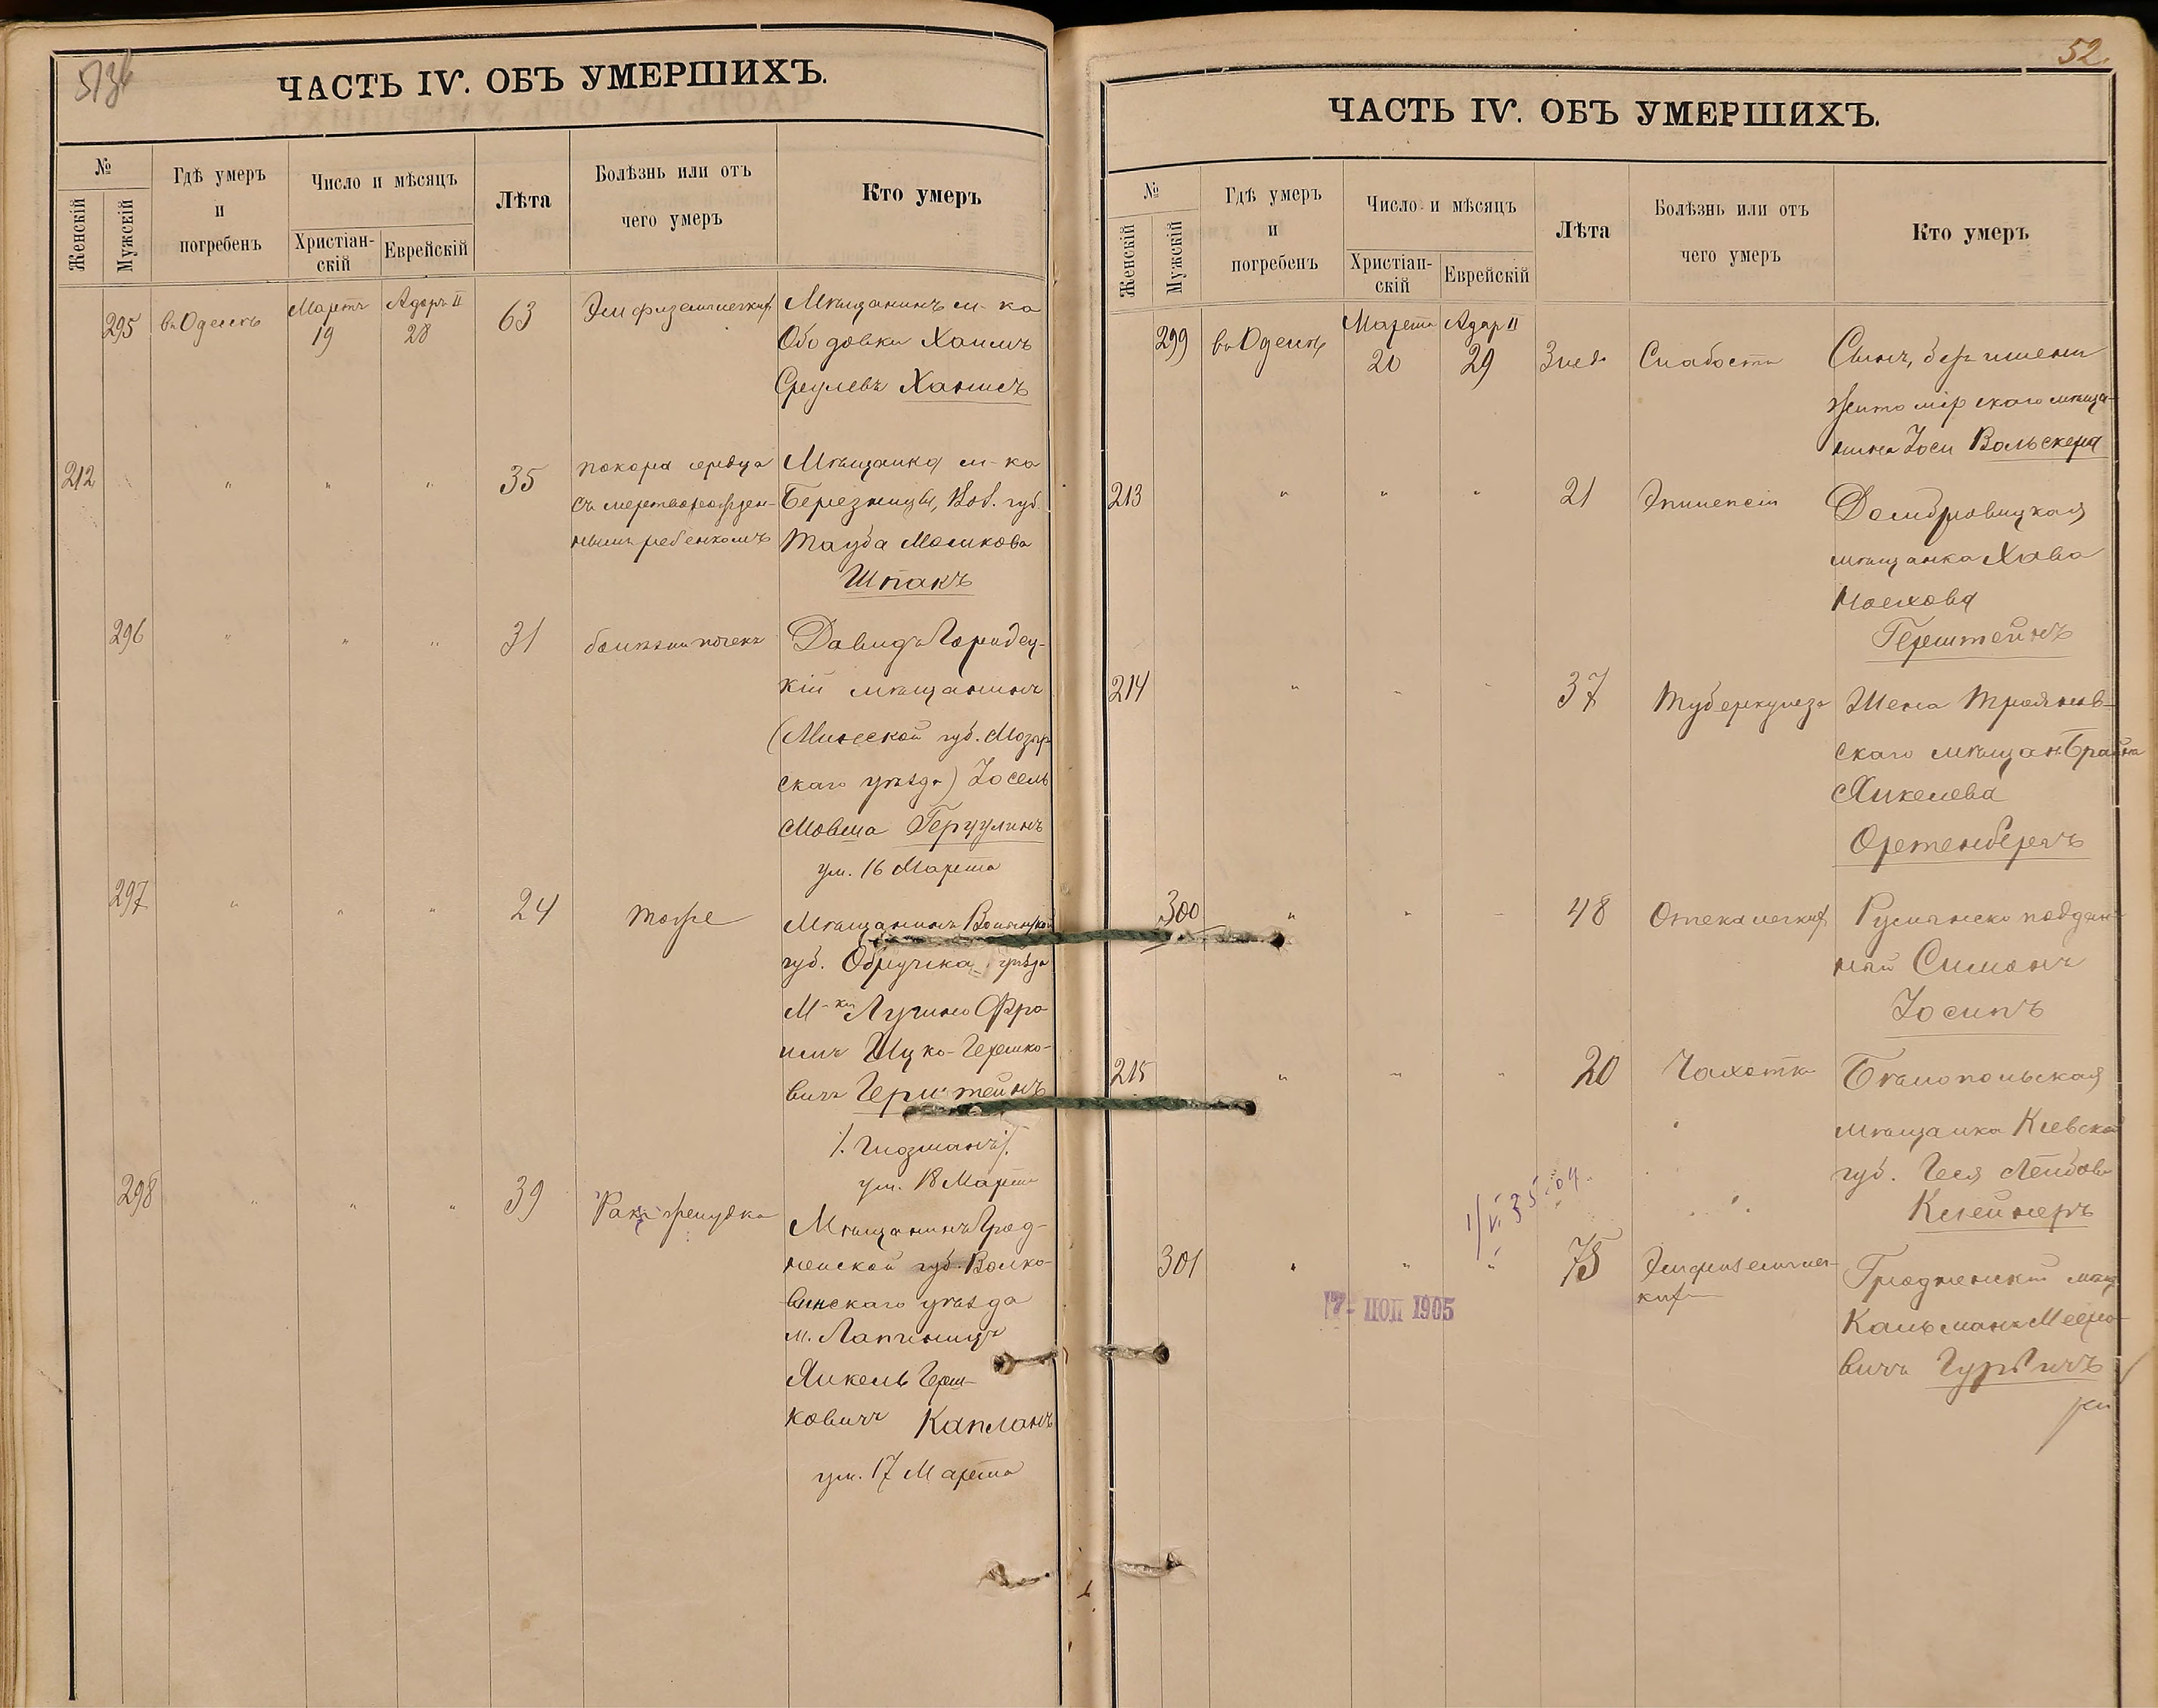 ЧАСТЬ IV. ОБЪ УМЕРШИХЪ.
№
Женскій
Мужскій
Гдѣ умеръ
и
погребенъ
Число и мѣсяцъ
Христіан-
скій
Еврейскій
Лѣта
Болѣзнь или отъ
чего умеръ
Кто умеръ
295 въ Одессѣ Мартъ 19 Адаръ II 28 63 Эмфизема легких Мѣщанинъ м-ка
Ободовки Хаимъ
Срулевъ Ханисъ
212 " " " 35 порока сердца Мѣщанка м-ка
съ мертворожден- Березницы, Вол. губ.
нымъ ребенкомъ Тауба Мошкова
Шпакъ
296 " " " 31 болѣзни почекъ Давидъ Городец-
кій мѣщанинъ
(Минской губ. Мозыр
скаго уѣзда) Іосель
Мовша
ум. 16 Марта
297 " " " 24 тоже Мѣщанинъ Волынской
губ. Овручска уѣзда
М-ки Лугино Фро
имъ Ицко-Гершко-
вичъ Герштейнъ
/. Глозманъ/.
ум. 18 Марта
298 " " " 39 Ракъ желудка
Мѣщанинъ Грод-
ненской губ. Волко-
винскаго уѣзда
м. Лапеницы
Янкель Герш-
ковичъ Капланъ
ум. 17 Марта
52.
ЧАСТЬ IV. ОБЪ УМЕРШИХЪ.
№
Женскій
Мужскій
Гдѣ умеръ
и
погребенъ
Число и мѣсяцъ
Христіан-
скій
Еврейскій
Лѣта
Болѣзнь или отъ
чего умеръ
Кто умеръ
299 въ Одессѣ Марта 20 Адар II 29 3 нед. Слабости Сынъ, безъ имени
Житомірскаго мѣща-
нина Іоси Вольскера
213 " " " 21 Эпилепсіи Домбровицкая
мѣщанка Хава
Мошкова
Герштейнъ
214 " " " 37 Туберкулеза Жена Трояновъ-
скаго мѣщан. Брайна
Янкелева
Ортенбергъ
300 " " " 48 Отека легких Румынско поддан-
ный Симонъ
Іосипъ
215 " " " 20 Чахотки Бѣлопольская
мѣщанка Кіевской
губ. Геся Лейбова
Клейнеръ
301 " " " 75 Эмфиземы лег-
кихъ
Гродненскій мѣщ
Кальманъ Мееро-
вичъ Гурвичъ
17 ІЮЛ 1905